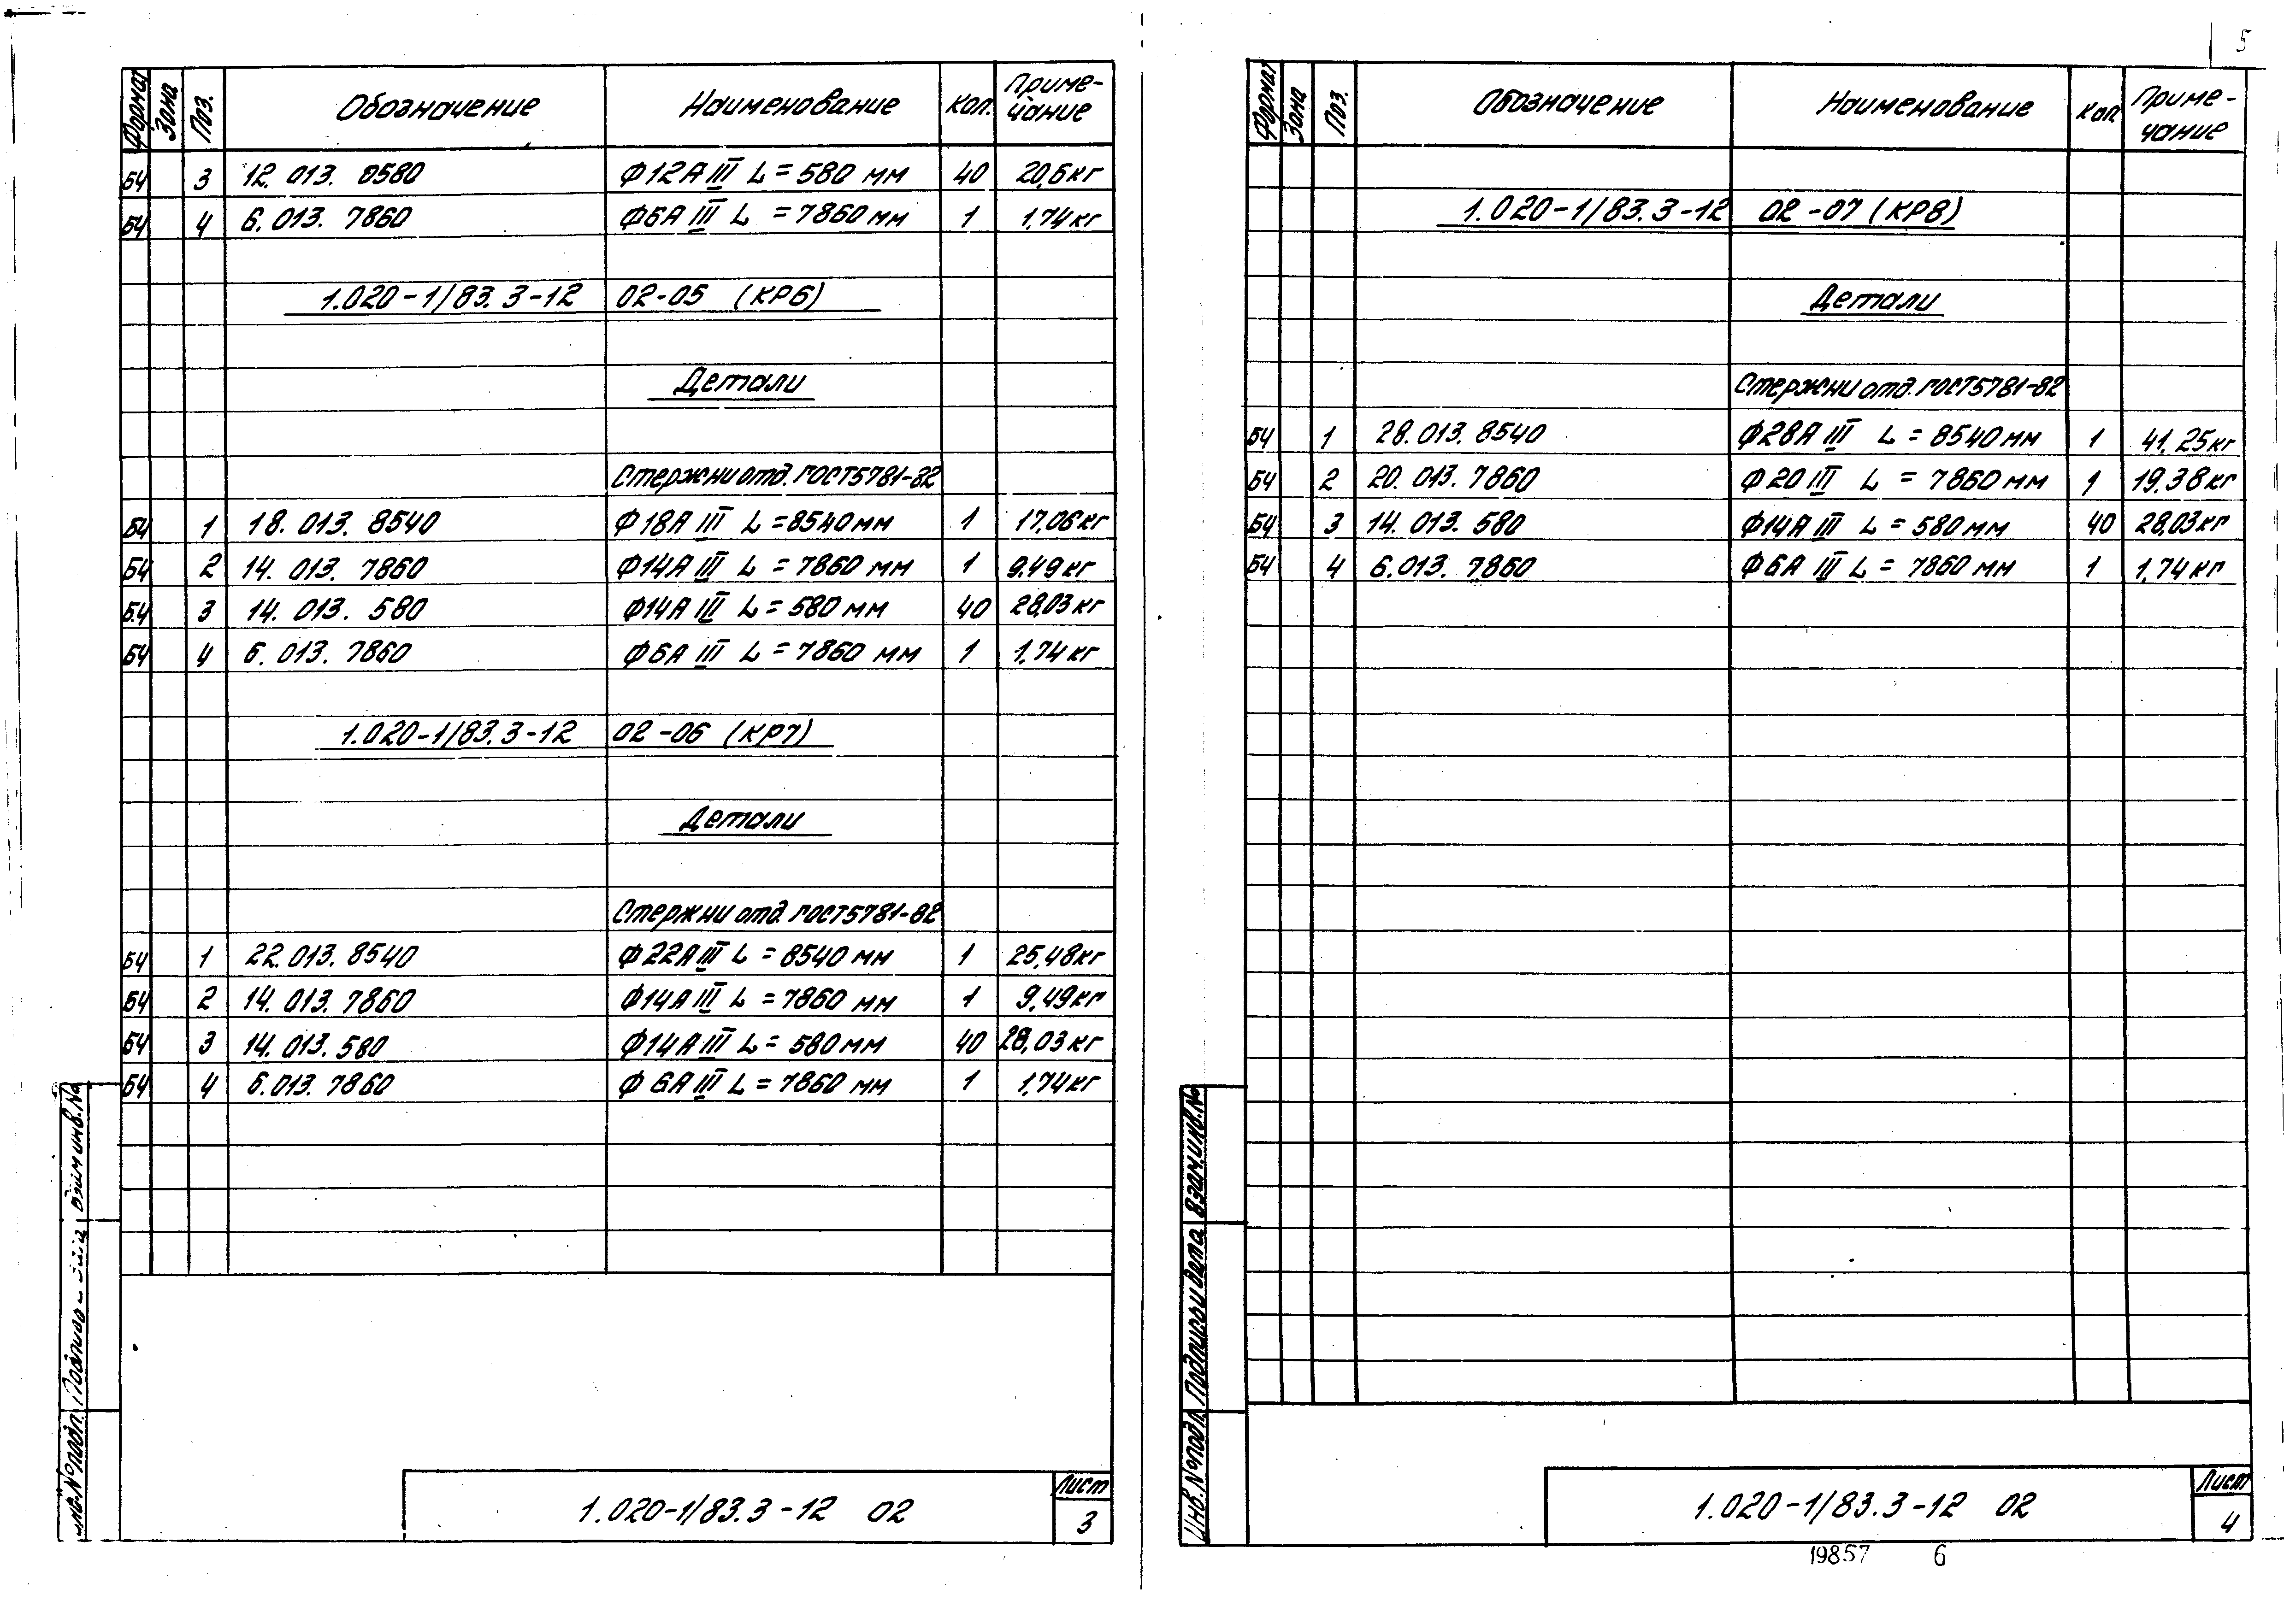 Формат Зона Поз. Обозначение Наименование Кол. Приме-
чание
БЧ 3 12. 013. 0580 Ф12А III L = 580 мм 40 20,6 кг
БЧ 4 6. 013. 7860 Ф6А III L = 7860 мм 1 1,74 кг
1.020-1/83. 3-12 02-05 (КР6)
Детали
Стержни отд. ГОСТ5781-82
БЧ 1 18. 013. 8540 Ф18А III L = 8540 мм 1 17,06 кг
БЧ 2 14. 013. 7860 Ф14А III L = 7860 мм 1 9,49 кг
БЧ 3 14. 013. 580 Ф14А III L = 580 мм 40 28,03 кг
БЧ 4 6. 013. 7860 Ф6А III L = 7860 мм 1 1,74 кг
1.020-1/83. 3-12 02-06 (КР7)
Детали
Стержни отд. ГОСТ5781-82
БЧ 1 22. 013. 8540 Ф22А III L = 8540 мм 1 25,48 кг
БЧ 2 14. 013. 7860 Ф14А III L = 7860 мм 1 9,49 кг
БЧ 3 14. 013. 580 Ф14А III L = 580 мм 40 28,03 кг
БЧ 4 6. 013. 7860 Ф 6А III L = 7860 мм 1 1,74 кг
№ подл.
взам инв. №
1.020-1/83. 3-12 02
Лист
3
5
Формат Зона Поз. Обозначение Наименование Кол Приме-
чание
1.020-1/83. 3-12 02-07 (КР8)
Детали
Стержни отд. ГОСТ5781-82
БЧ 1 28. 013. 8540 Ф28А III L = 8540 мм 1 41,25 кг
БЧ 2 20. 013. 7860 Ф 20 III L = 7860 мм 1 19,38 кг
БЧ 3 14. 013. 580 Ф14А III L = 580 мм 40 28,03 кг
БЧ 4 6. 013. 7860 Ф 6А III L = 7860 мм 1 1,74 кг
Инв. № подл. Подпись и дата Взам. инв. №
1.020-1/83. 3-12 02
Лист
4
19857 6